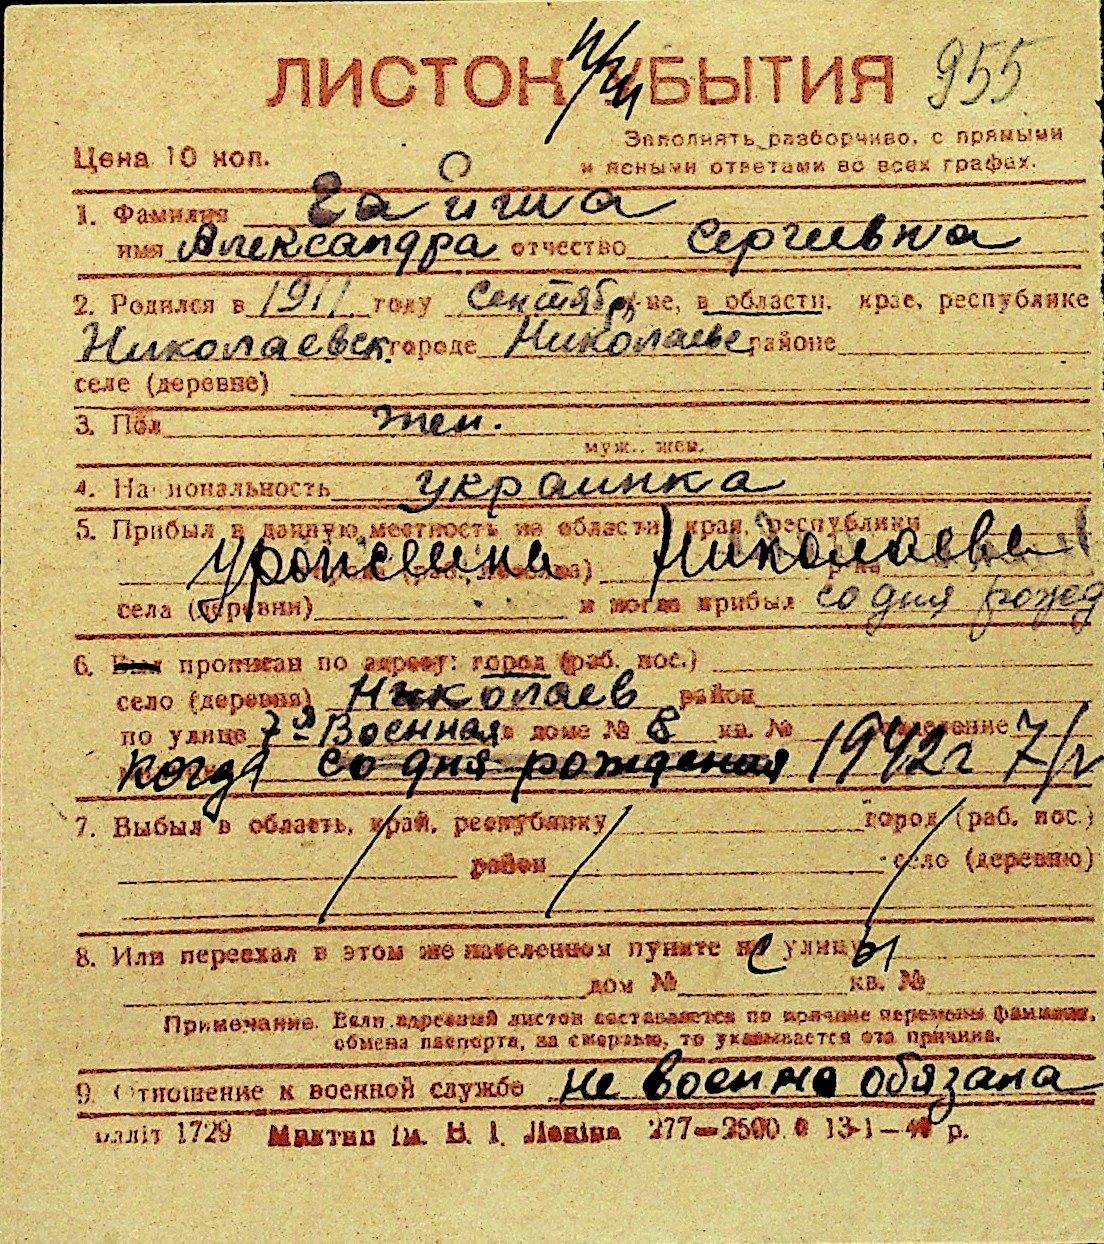 ЛИСТОК УБЫТИЯ 955
Заполнять разборчиво, с прямыми
Цена 10 коп. и ясными ответами во всех графах.
1. Фамилия Гайша
имя Александра отчество Сергеевна
2. Родился в 1911 году Сентябр це, в области, крае, республике
Николаевск. городе Николаеве районе
селе (деревне)
3. Пол жен.
муж., жен.
4. Национальность украинка
5. Прибыл в данную местность из области, края, республики
Уроженка Николаева
села (деревни) и когда прибыл со дня рожд
6. Был прописан по адресу: город (раб. пос.)
село (деревня) Николаев район
по улице 7я Военная в доме № 8 кв. №
когда со дня рождения 1942г
7. Выбыл в область, край, республику город (раб. пос.)
район село (деревню)
8. Или переехал в этом же населенном пункте на улицу
дом № кв. №
Примечание. Если адресный листок составляется по причине перемены фамилии,
обмена паспорта, за смертью, то указывается эта причина.
9. Отношение к военной службе не военно обязана
1729 ім. В. І. Леніна 277—2500 13-1-4 р.